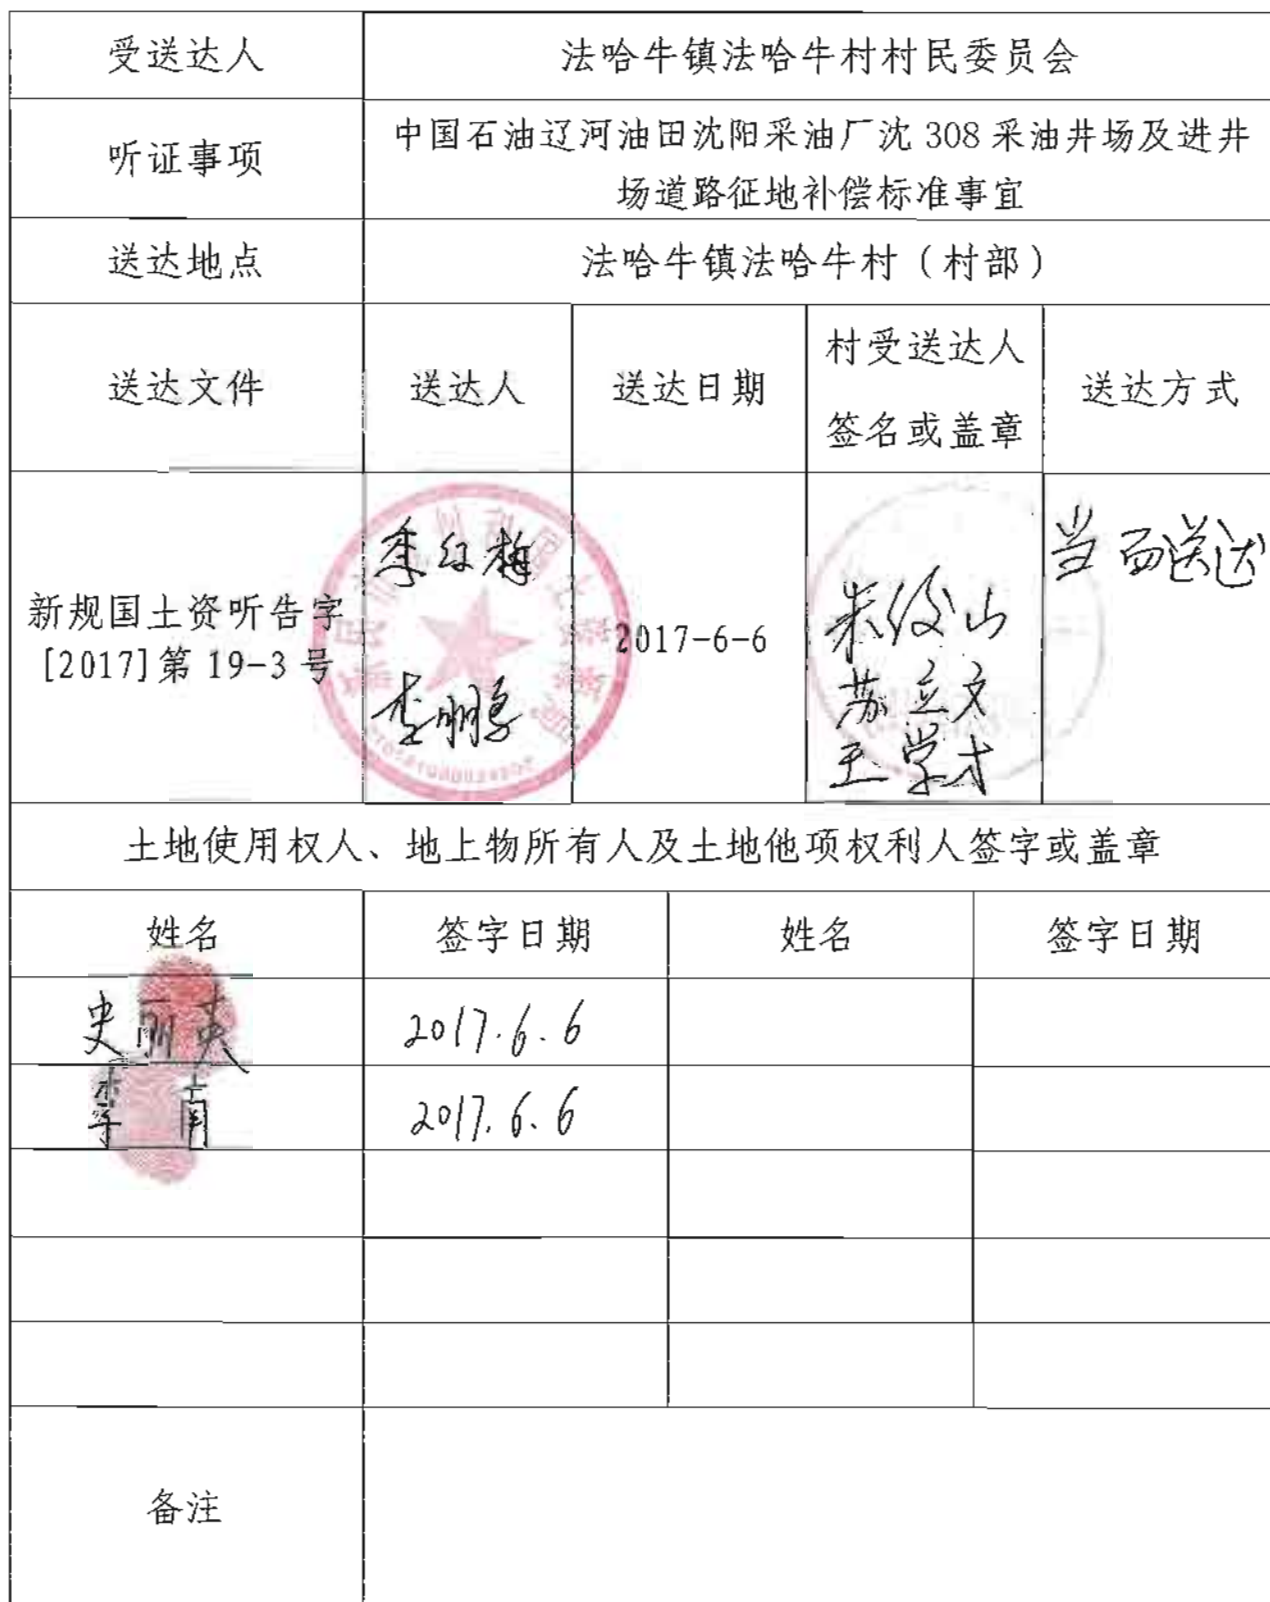 受送达人
法哈牛镇法哈牛村村民委员会
听证事项
中国石油辽河油田沈阳采油厂沈 308 采油井场及进井
场道路征地补偿标准事宜
送达地点
法哈牛镇法哈牛村（村部）
送达文件
送达人
送达日期
村受送达人
签名或盖章
送达方式
新规国土资听告字
[2017]第 19-3 号
李红梅
李鹏
2017-6-6
苏立文
王学才
当面送达
土地使用权人、地上物所有人及土地他项权利人签字或盖章
姓名
签字日期
姓名
签字日期
史丽英
2017.6.6
2017.6.6
备注